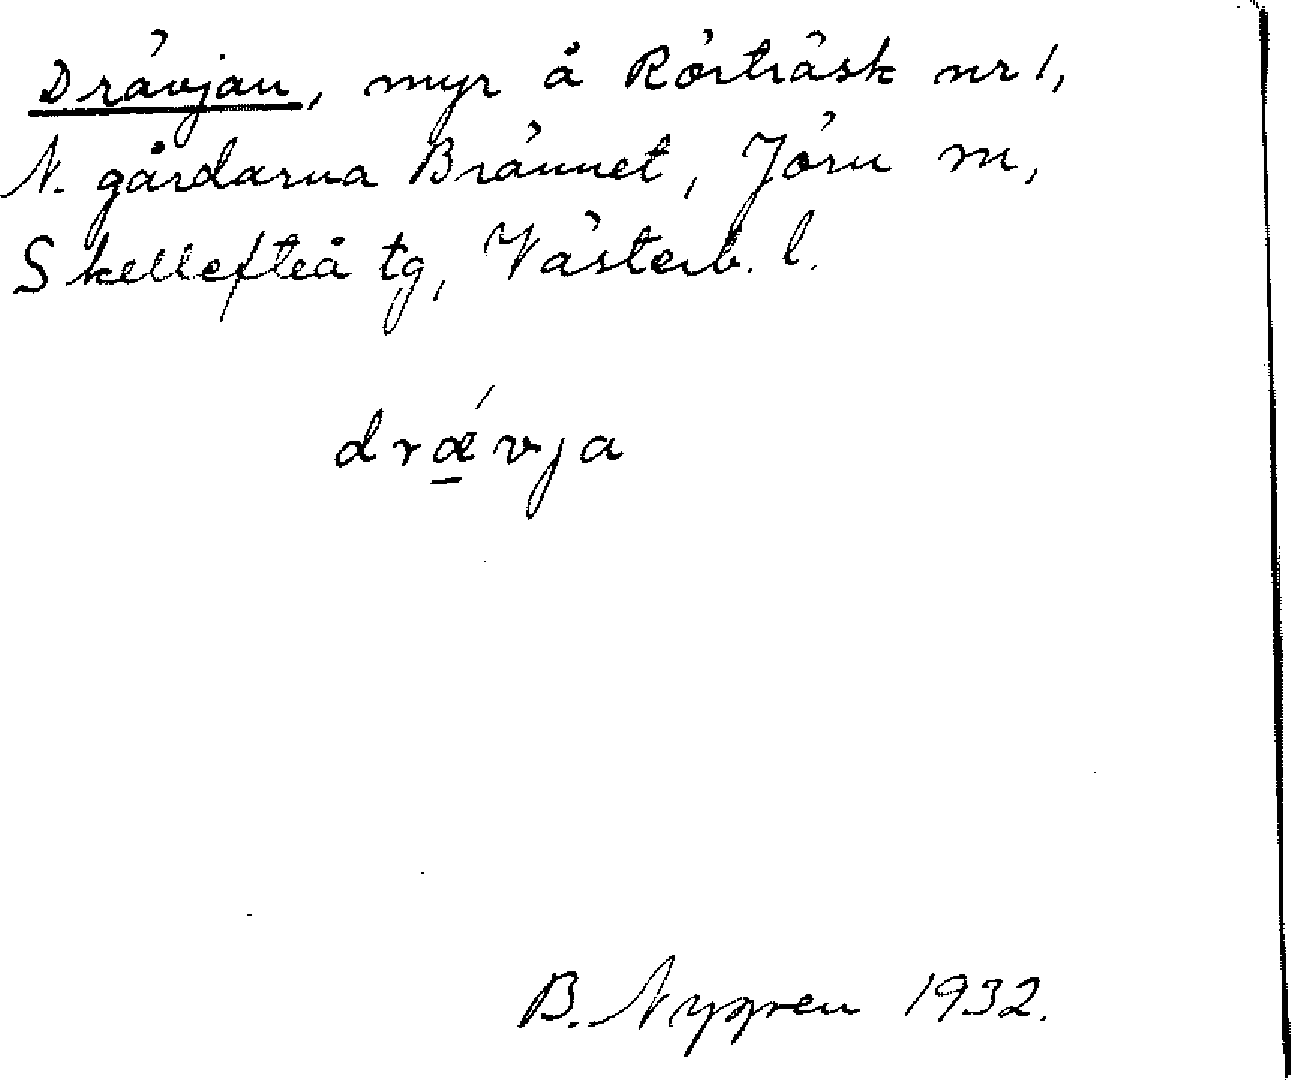 Drävjan, myr å Rörträsk nr 1,
N. gårdarna Brännet, Jörn sn,
Skellefteå tg, Västerb. l.
drǽvja
B. Nygren 1932.